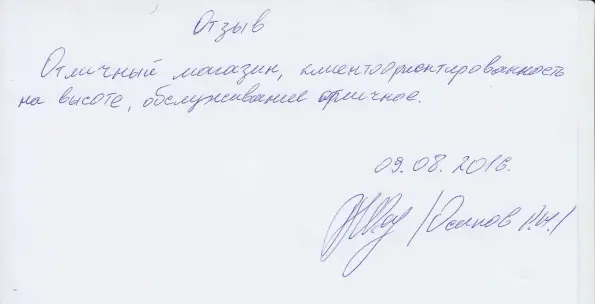 Отзыв
Отличный магазин, клиентоориентированность
на высоте, обслуживание отличное.
09.08.2016.